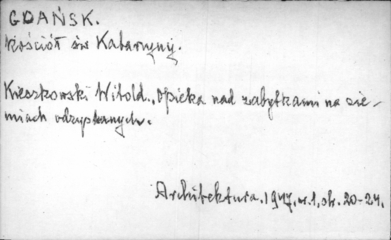 GDAŃSK.
Kościół św Katarzyny.
Kieszkowski Witold. Opieka nad zabytkami na zie-
miach odzyskanych.
Architektura. 1947, nr. 1, str. 20-24.